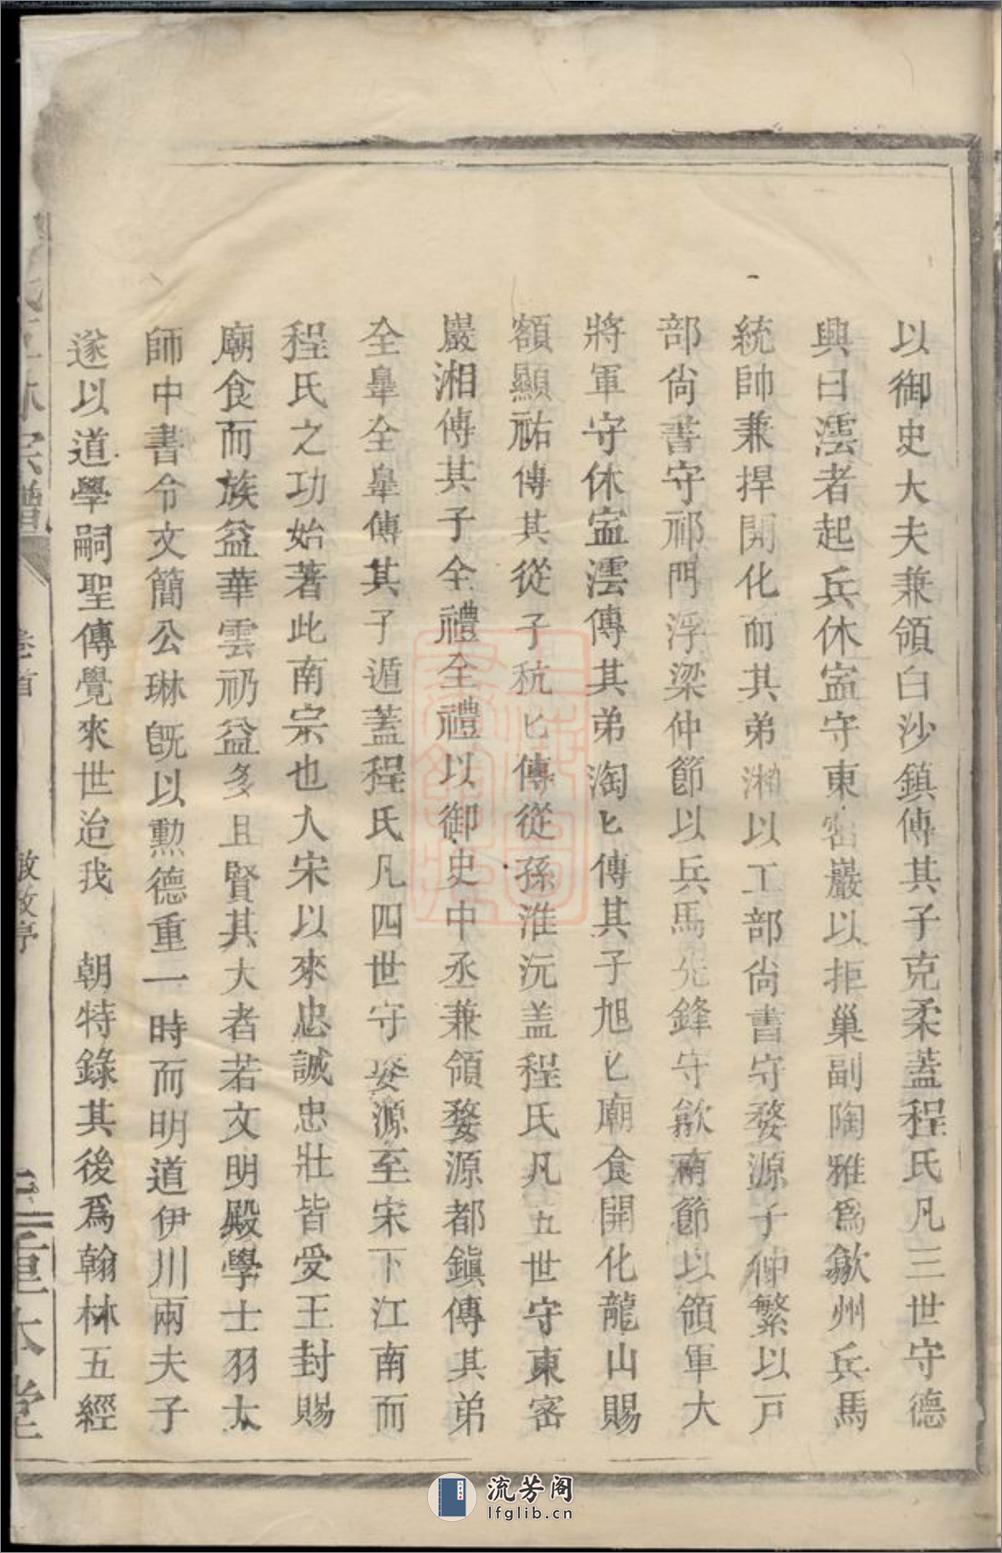 以御史大夫兼領白沙鎮傳其子克柔蓋程氏凡三世守德
興曰澐者起兵休寍守東密巖以拒巢副陶雅爲歙州兵馬
統帥兼捍開化而其弟湘以工部尚書守婺源子仲繁以戸
部尚書守祁門浮梁仲節以兵馬先鋒守歙南節以領軍大
將軍守休寍澐傳其弟淘匕傳其子旭匕廟食開化龍山賜
額顯祐傳其從子秔匕傳從孫淮沅盖程氏凡五世守東密
巖湘傳其子全禮全禮以御史中丞兼領婺源都鎮傳其弟
全臯全臯傳其子遁蓋程氏凡四世守婺源至宋下江南而
程氏之功始著此南宗也入宋以來忠誠忠壯皆受王封賜
廟食而族益華雲礽益多且賢其大者若文明殿學士羽太
師中書令文簡公琳旣以勲德重一時而明道伊川兩夫子
遂以道學嗣聖傳覺來世迨我 朝特錄其後爲翰林五經
宗譜 卷首 重本堂
流芳阁
lfglib.cn